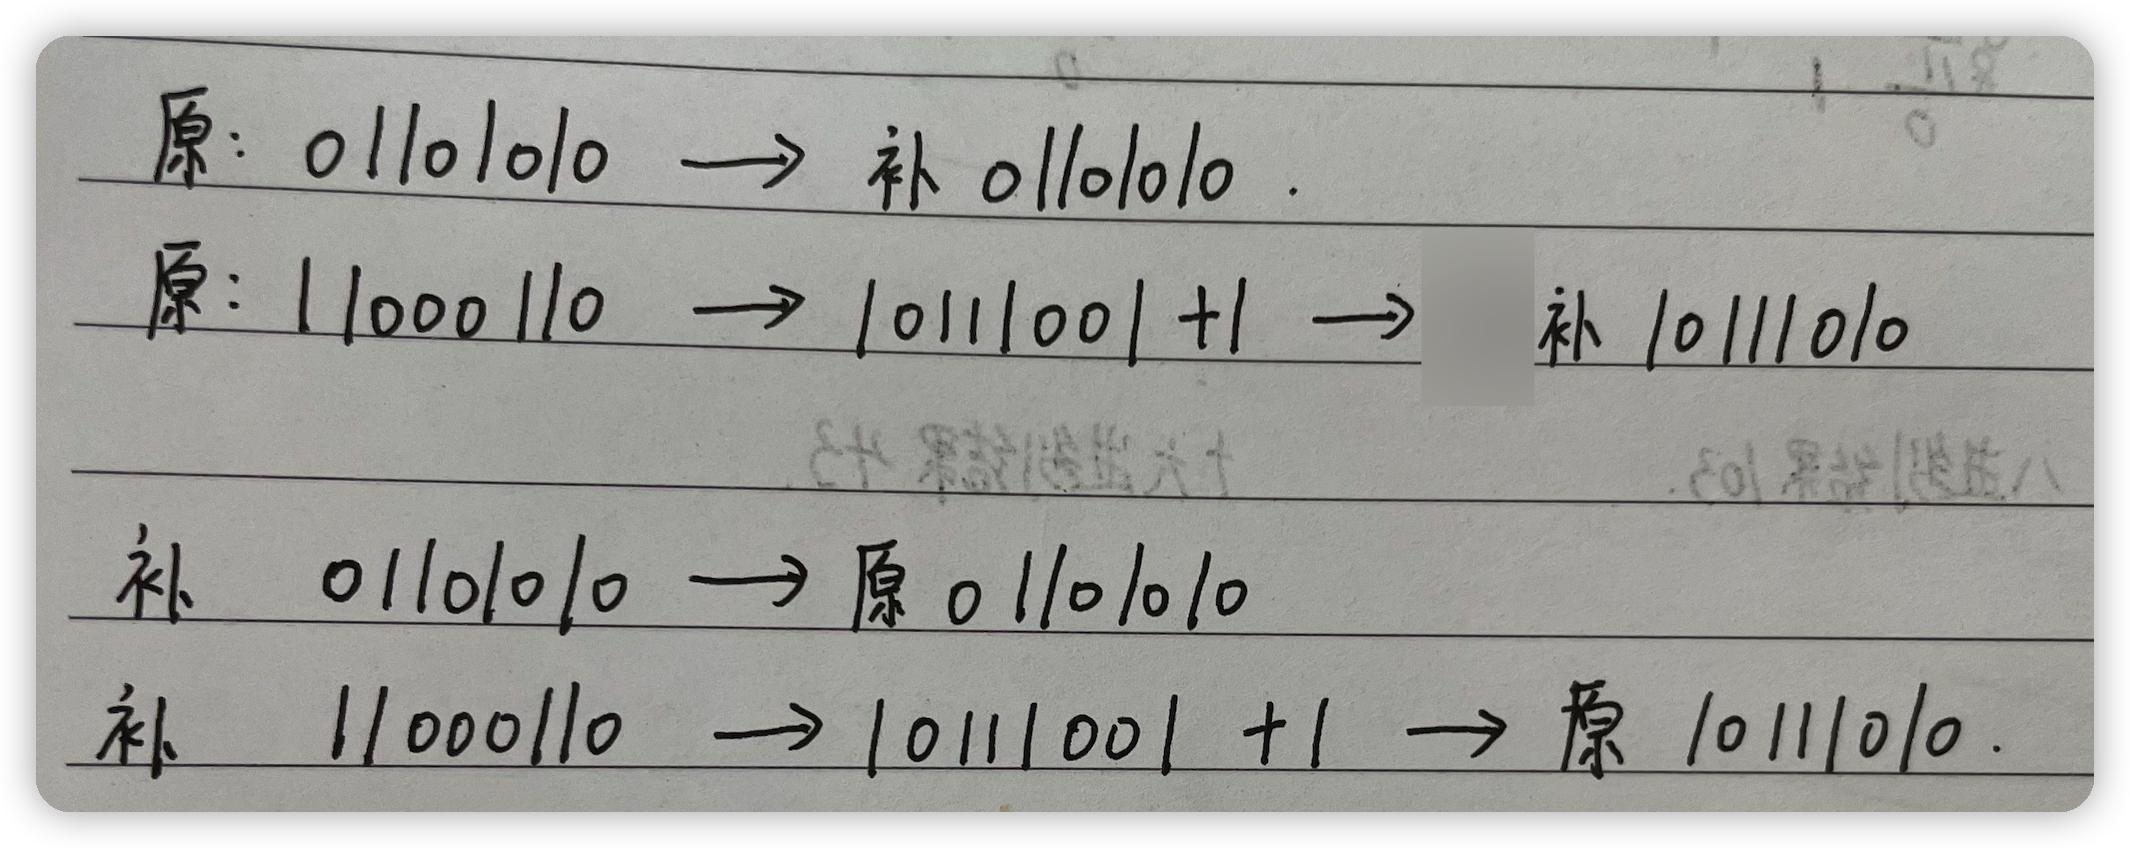 原: 01101010 → 补 01101010 .
原: 11000110 → 10111001 +1 → 补 10111010
补 01101010 → 原 01101010
补 11000110 → 10111001 +1 → 原 10111010.